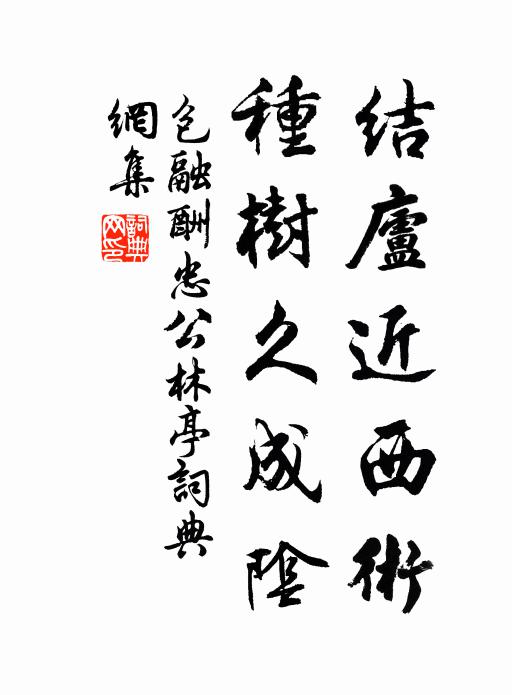 結廬近西術
種樹久成陰
包融酬忠公林亭詞典
網集
詞典
网印